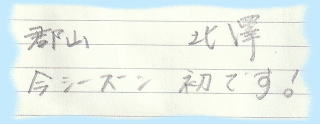 郡山 北澤
今シーズーン 初です!